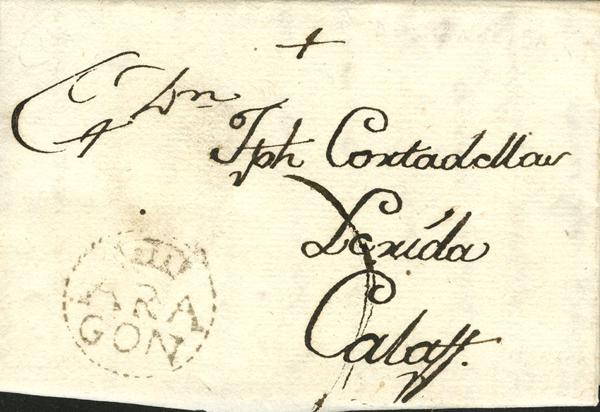 +
A Dn
Jph Cortadellas
Lerída
Calaff.
ARA
GON